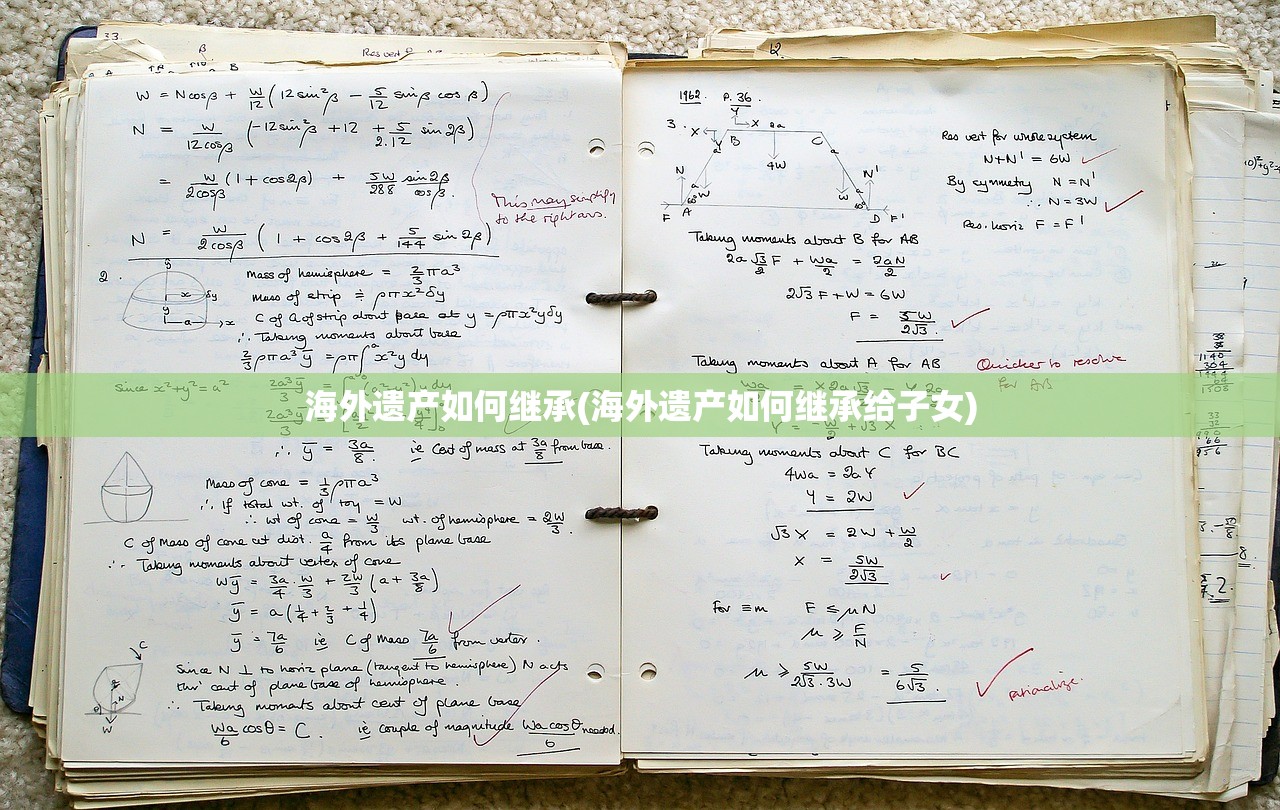 33.
β
Res vert
W = N cos β + W/12 (12 sin²β − 5/12 sin β cos β)
N = W/(12 cos β) (−12 sin²β + 12 + 5/(2.12) sin 2β)
= W/(2 cos β) (1 + cos 2β) + 5W/288 sin 2β/cos β.
This may simplify
to the right ans.
N = W/(2 cos β) (1 + cos 2β + 5/144 sin 2β)
2.
Mass of hemisphere = 2/3 π a³
mass of strip ≑ ρπx²δy
C of G of strip about base at y = ρπx²yδy
∴ Taking moments about base
2/3 ρπa³ȳ = ρπ∫x²y dy
Since x²+y² = a²
海外遗产如何继承(海外遗产如何继承给子女)
∴ ȳ = 3a/8. ie Cent of mass at 3a/8 from base.
Mass of cone = 1/3 ρπa³
∴ If total wt. of toy = W
∴ wt of cone = W/3 wt. of hemisphere = 2W/3.
C of Mass of cone at dist. a/4 from its plane base
∴ Taking moments about vertex of cone
Wȳ = 3a/4 · W/3 + 2W/3 (a + 3a/8)
ȳ = a(1/4 + 2/3 + 1/4)
ȳ = 7a/6 ie C of Mass 7a/6 from vertex.
Since N ⊥ to horiz plane (tangent to hemisphere) N acts
thro' cent of plane base of hemisphere.
∴ Taking moments about cent of plane base
Wa/6 cos θ = C. ie couple of magnitude Wa cos θ/6 needed.
12.
1962. P. 36.
3.
Res vert for whole system
N+N' = 6W
By symmetry N = N'
∴ N = 3W
Res. horiz F = F'
Taking moments about B for AB
2a √3/2 F + Wa/2 = 2aN/2
2√3 F + W = 6W
F = 5W/2√3.
Taking moments about A for AB
Quicker to resolve
for AB
Taking moments about C for BC
4Wa = 2aY
Y = 2W
√3 X = 2W + W/2
X = 5W/2√3
For ≡m F ≤ μN
μ ≥ F/N
μ ≥ 5W/(2√3 · 3W) = 5/6√3.
rationalize.